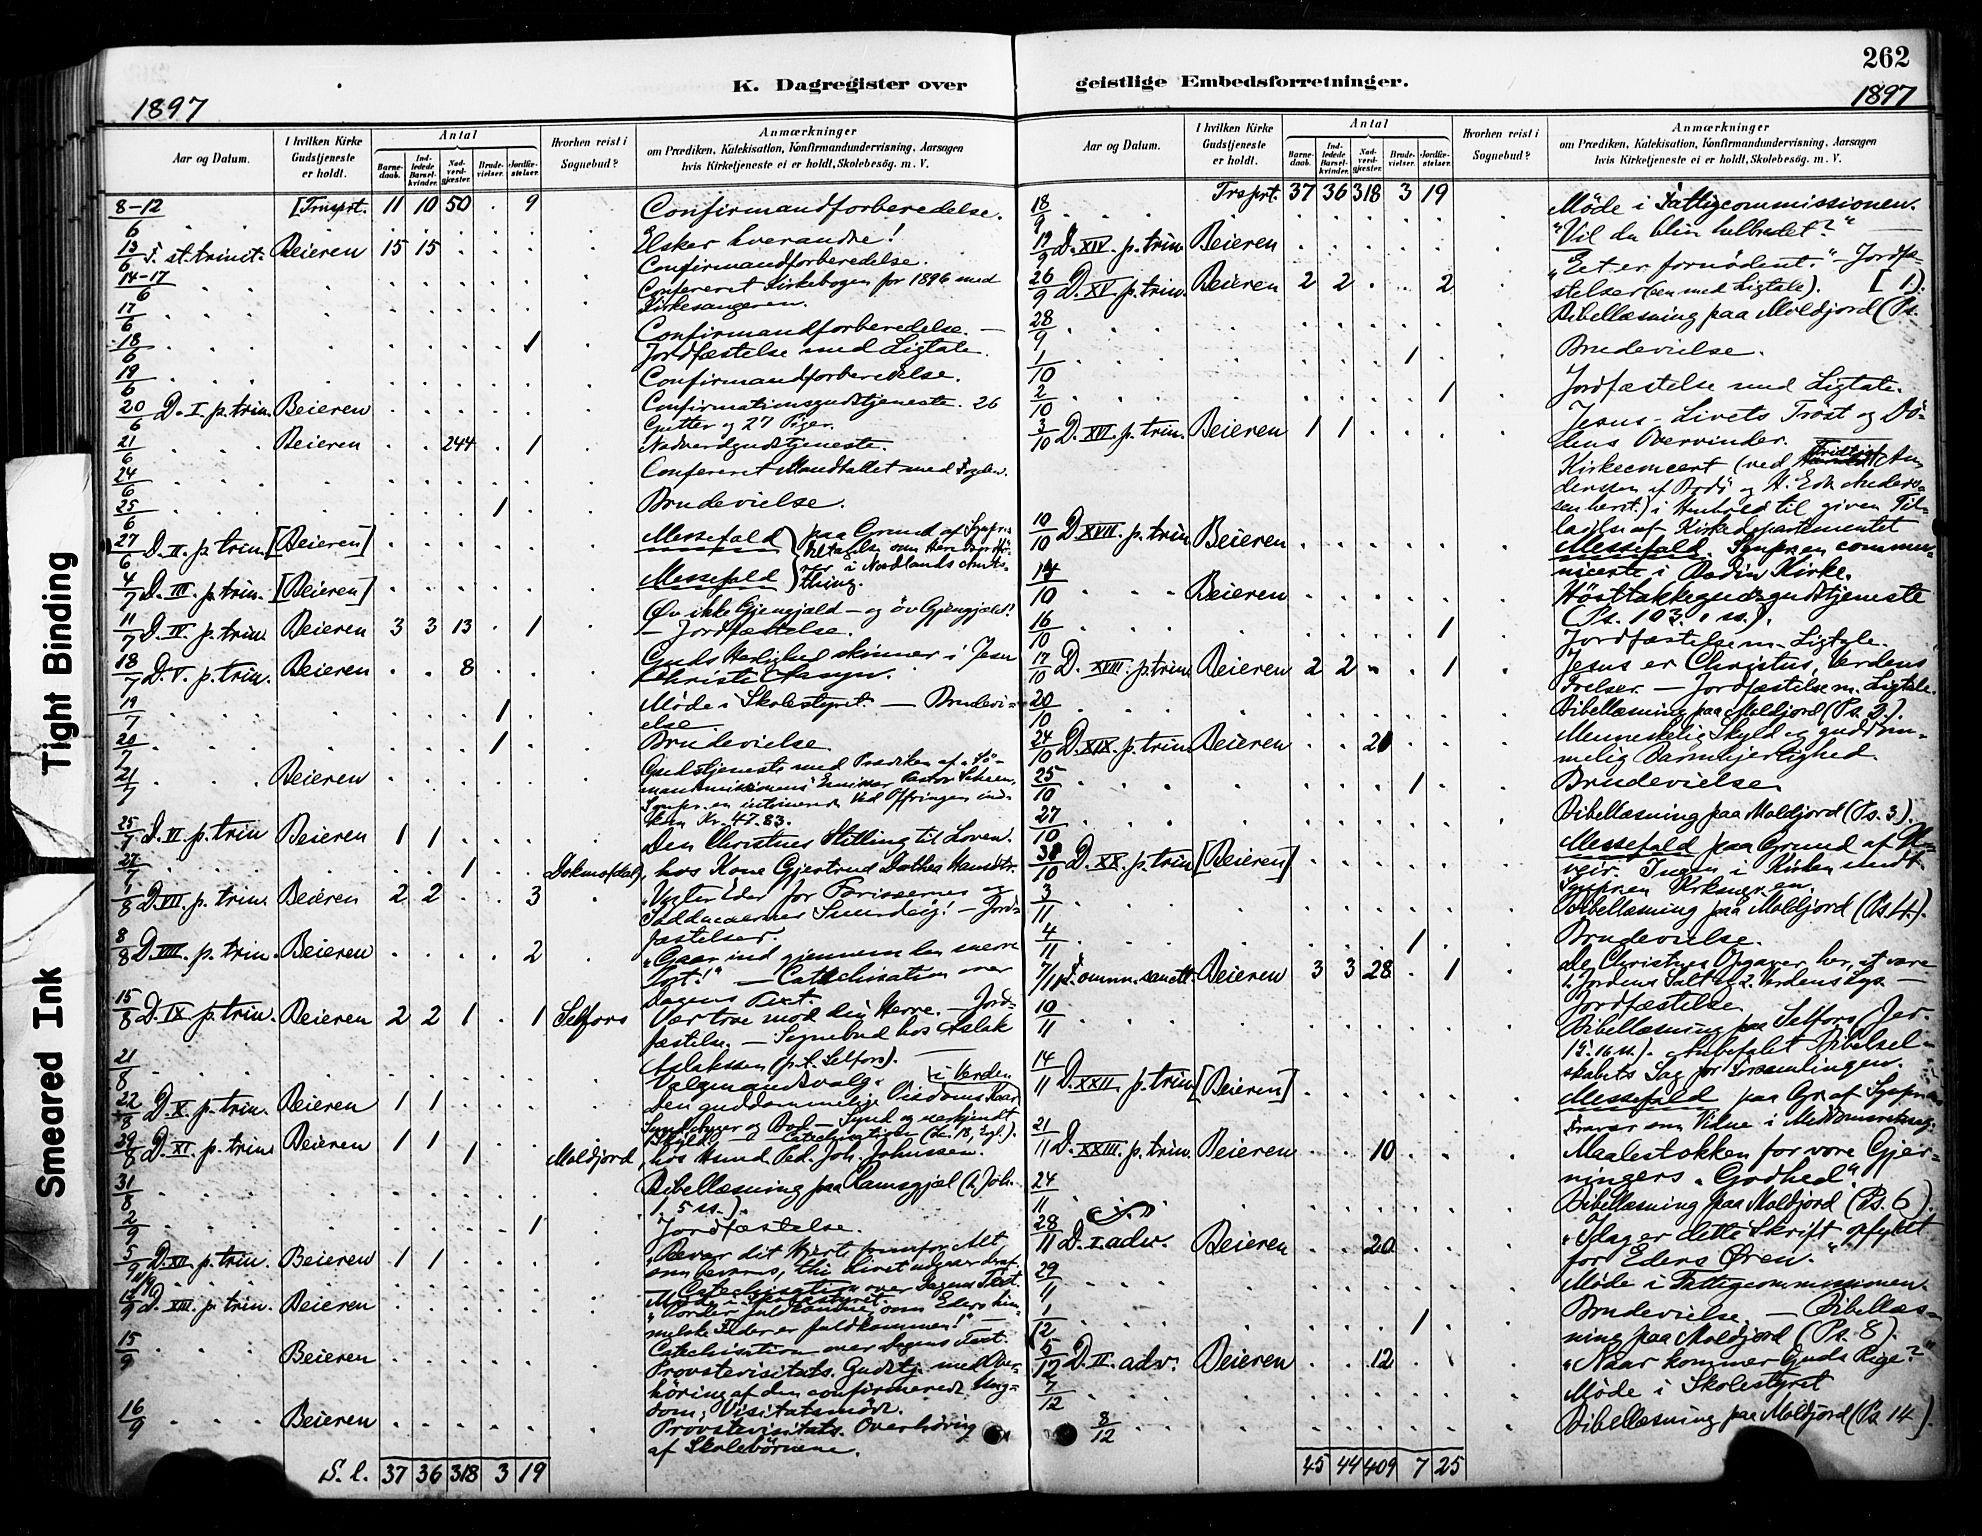 262
K. Dagregister over geistlige Embedsforretninger.
1897
1897
Aar og Datum.
I hvilken Kirke Gudstjeneste er holdt.
Antal
Barnedaab.
Indledede Barselkvinder.
Nadverdgjæster.
Brudevielser.
Jordfæstelser.
Hvorhen reist i Sognebud?
Anmærkninger
om Prædiken, Katekisation, Konfirmandundervisning, Aarsagen
hvis Kirketjeneste ei er holdt, Skolebesøg. m. V.
8-12/6 [Trnsprt. 11 10 50 . 9 Confirmandforberedelse.
13/6 F. st. trinit. Beieren 15 15 Elsker hverandre!
Confirmandforberedelse.
14-17/6 Confereret Kirkebogen for 1896 med
17/6 Kirkesangeren.
Confirmandforberedelse. —
18/6 1 Jordfæstelse med Ligtale.
19/6 Confirmandforberedelse.
20/6 D. I. p. trin. Beieren Confirmationsgudstjeneste 26
Gutter og 27 Piger.
21/6 Beieren 244 . 1 Nadverdgudstjeneste.
24/6 Confereret Mandtallet med Fogden.
25/6 1 Brudevielse.
27/6 D. II. p. trin. [Beieren] Messefald paa Grund af Sognepr.s
4/7 D. III. p. trin. [Beieren] Messefald i Nordlands Amts-
thing.
11/7 D. IV. p. trin. Beieren 3 3 13 . 1 Øv ikke Gjengjæld — og öv Gjengjæld!
— Jordfæstelse.
18/7 D. V. p. trin. Beieren . . 8 Guds Herlighed skinner i Jesu
Christi Aasyn.
19/7 1 Møde i Skolestyret. — Brudevi-
else
20/7 1 Brudevielse
21/7 Beieren Gudstjeneste med Prædiken af "Sö-
mandsmissionens Emissær Pastor
Ved Offringen ind-
kom Kr. 47.83.
25/7 D. VI. p. trin Beieren 1 1 Den Christnes Stilling til Loven.
27/7 1 hos Kone Gjertrud Dorthea Hansdtr.
1/8 D. VII. p. trin. Beieren 2 2 . . 3 "Vogter Eder for Farisæernes og
Sadducæernes Surdeig! — Jord-
fæstelser.
8/8 D. VIII. p. trin. Beieren 2 "Gaar ind gjennem den snevre
Port!" — Catechisation over
Dagens Text.
15/8 D. IX. p. trin. Beieren 2 2 1 . 1 Selfors Vær tro mod din Herre. — Jord-
fæstelse. — Sognebud hos Aslak
Aslakssen (p. t. Selfors).
21/8 Valgmandsvalg.
22/8 D. X. p. trin. Beieren 1 1 Den guddommelige Visdoms Kaar i Verden
29/8 D. XI. p. trin. Beieren 1 1 Synd og
Catechisation
1 Moldjord, hos Husmd. Ped. Joh. Johnssen.
31/8 Bibellæsning paa Ramsgjæl (1 Joh.
1, 5 ss.).
2/9 1 Jordfæstelse.
5/9 D. XII. p. trin. Beieren 1 1 "Bevar dit Hjerte fremfor Alt
som bevares, thi Livet udgaar deraf.
— Catechisation over Dagens Text.
Møde i Skolestyret.
12/9 D. XIII. p. trin. Beieren "Vorder fuldkomne, som Eders him-
melske Fader er fuldkommen!" —
Catechisation over Dagens Text.
15/9 Beieren Provstevisitats. Gudstj. med Over-
höring af den confirmerede Ung-
dom; Visitatsmöde.
16/9 Beieren Provstevisitats. Overhöring
af Skolebörnene.
S. l. 37 36 318 3 19
Aar og Datum.
I hvilken Kirke Gudstjeneste er holdt.
Antal
Barnedaab.
Indledede Barselkvinder.
Nadverdgjæster.
Brudevielser.
Jordfæstelser.
Hvorhen reist i Sognebud?
Anmærkninger
om Prædiken, Katekisation, Konfirmandundervisning, Aarsagen
hvis Kirketjeneste ei er holdt, Skolebesøg. m. V.
Trsprt. 37 36 318 3 19
18/9 Møde i Fattigcommissionen.
19/9 D. XIV. p. trin. Beieren "Vil du blive helbredet?"
26/9 D. XV. p. trin. Beieren 2 2 . . 2 "Eet er fornødent." — Jordfæ-
stelser (een med Ligtale).
28/9 Bibellæsning paa Moldjord (Ps. 1).
1/10 1 Brudevielse.
2/10 1 Jordfæstelse med Ligtale.
3/10 D. XVI. p. trin. Beieren 1 1 Jesus — Livets Tröst og Dö-
dens Overvinder.
Kirkeconcert (ved Fridtjof An-
derssen af Bodö og H. Edv. Anders-
sen herst.) i Henhold til given Til-
ladelse af Kirkedepartementet
10/10 D. XVII. p. trin Beieren Messefald. Sognepr.en commu-
nicerte i Bodin Kirke.
14/10 Beieren Høsttakkegudsgudstjeneste
(Ps. 103, 1 ss.).
16/10 1 Jordfæstelse m. Ligtale.
17/10 D. XVIII. p. trin. Beieren 2 2 . . 1 Jesus er Christus, Verdens
Frelser. — Jordfæstelse m. Ligtale.
20/10 Bibellæsning paa Moldjord (Ps. 2).
24/10 D. XIX. p. trin. Beieren . . 20 Menneskelig Skyld og guddom-
melig Barmhjertighed.
25/10 1 Brudevielse.
27/10 Bibellæsning paa Moldjord (Ps. 3).
31/10 D. XX. p. trin [Beieren] Messefald paa Grund af U-
veir. Ingen i Kirken undt.
3/11 Bibellæsning paa Moldjord (Ps. 4).
4/11 1 Brudevielse.
7/11 F. omn. sanct. Beieren 3 3 28 . 1 De Christnes Opgaver her, at være
1. Jordens Salt og 2. Verdens Lys. —
Jordfæstelse
10/11 Bibellæsning paa Selfors (Jer.
15, 16 ss.). Anbefalet Bibelsel-
skabets Sag for Forsamlingen.
14/11 D. XXII. p. trin. [Beieren] Messefald paa Gr. af Sognepr.ens
Fravær som Vidne i
21/11 D. XXIII. p. trin. Beieren . . 10 Maalestokken for vore Gjer-
ningers "Godhed".
24/11 Bibellæsning paa Moldjord (Ps. 6)
28/11 D. I. adv. Beieren . . 20 "Idag er dette Skrift opfyldt
for Eders Øren."
29/11 Møde i Fattigcommissionen.
1/12 1 Brudevielse. — Bibellæs-
ning paa Moldjord (Ps. 8).
5/12 D. II. adv. Beieren . . 12 "Naar kommer Guds Rige?"
7/12 Møde i Skolestyret
8/12 Bibellæsning paa Moldjord (Ps. 14).
45 44 409 7 25
Tight Binding
Smeared Ink